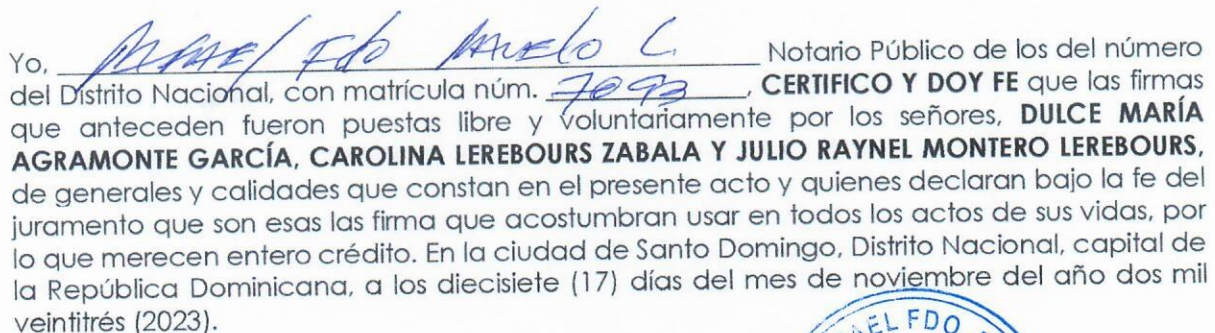 Yo, Rafael Fdo Ravelo C. Notario Público de los del número
del Distrito Nacional, con matrícula núm. 7093, CERTIFICO Y DOY FE que las firmas
que anteceden fueron puestas libre y voluntariamente por los señores, DULCE MARÍA
AGRAMONTE GARCÍA, CAROLINA LEREBOURS ZABALA Y JULIO RAYNEL MONTERO LEREBOURS,
de generales y calidades que constan en el presente acto y quienes declaran bajo la fe del
juramento que son esas las firma que acostumbran usar en todos los actos de sus vidas, por
lo que merecen entero crédito. En la ciudad de Santo Domingo, Distrito Nacional, capital de
la República Dominicana, a los diecisiete (17) días del mes de noviembre del año dos mil
veintitrés (2023).
AEL FDO